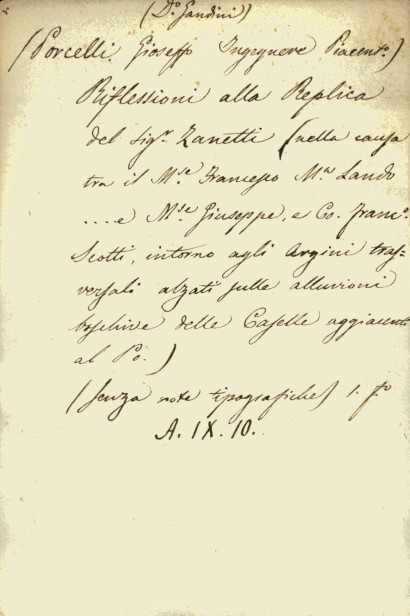 (Dº. Gandini)
(Porcelli Gioseffo Ingegnere Piacentº.)
Riflessioni alla Replica
del Sigʳ. Zanetti (nella causa
tra il Mˢᵉ. Francesco Mᵃ. Lando
....e Mˢᵉ. Giuseppe, e Co. Francº.
Scotti, intorno agli Argini tras=
versali alzati sulle alluvioni
boschive delle Caselle aggiacenti
al Pò.)
(senza note tipografiche) 1. fº
A. IX. 10.